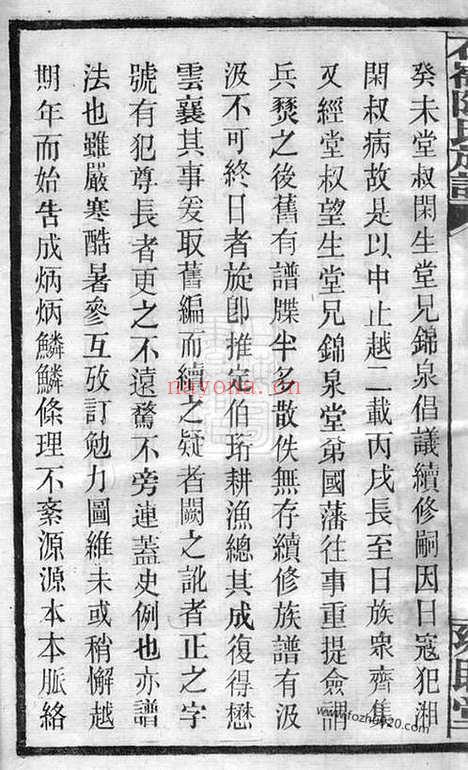 癸未堂叔閑生堂兄錦泉倡議續修嗣因日寇犯湘
閑叔病故是以中止越二載丙戌長至日族衆齊集
又經堂叔望生堂兄錦泉堂弟國藩往事重提僉謂
兵燹之後舊有譜牒半多散佚無存續修族譜有汲
汲不可終日者旋卽推定伯珩耕漁總其成復得懋
雲襄其事爰取舊編而續之疑者闕之訛者正之字
號有犯尊長者更之不遠騖不旁連蓋史例也亦譜
法也雖嚴寒酷暑參互攷訂勉力圖維未或稍懈越
期年而始吿成炳炳鱗鱗條理不紊源源本本脈絡
nayona.cn
www.fozhu920.com